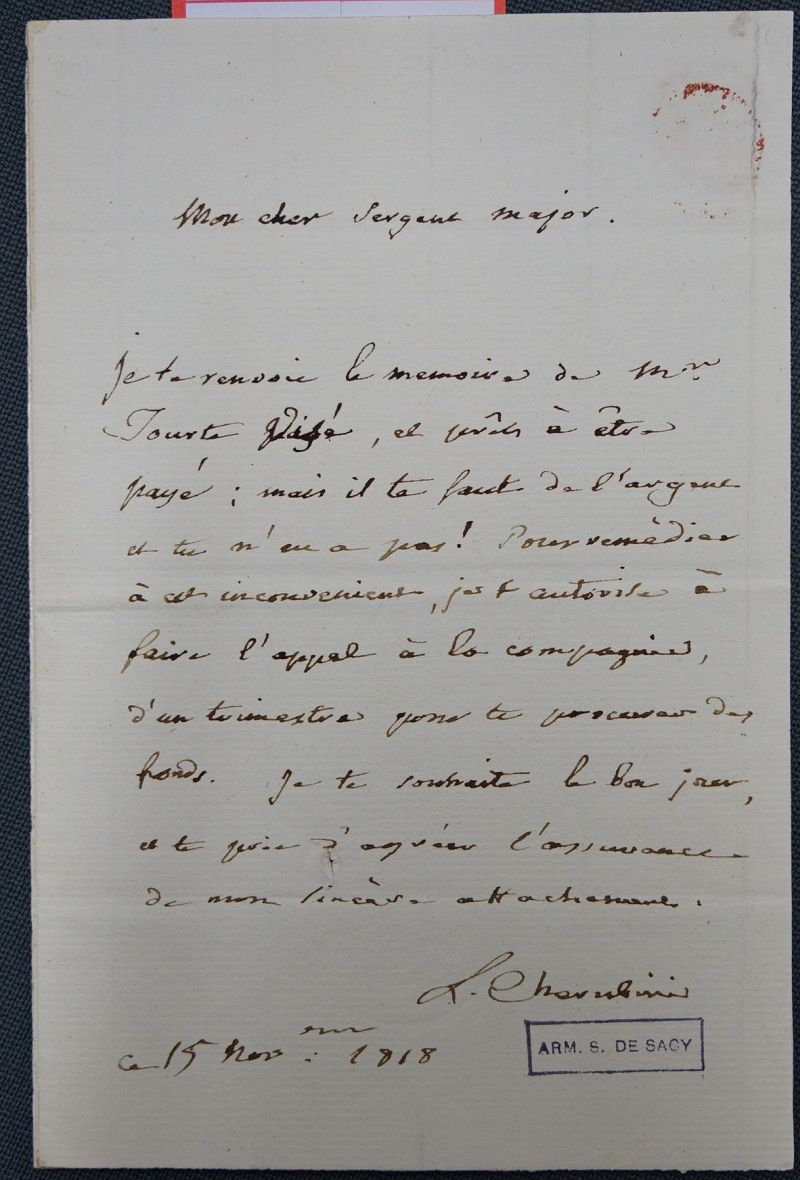 Mon cher Sergent major.
Je te renvoie le memoire de Mr.
Tourte visé, et prêts à être
payé ; mais il te faut de l'argent
et tu n'en a pas! Pour remèdier
à cet inconvenient, je t'autorise à
faire l'appel à la compagnie,
d'un trimestre pour te procurer des
fonds. Je te souhaite le bon jour,
et te prie d'agréer l'assurance
de mon sincère attachement.
L. Cherubini
ce 15 Nov.em 1818
ARM. S. DE SACY